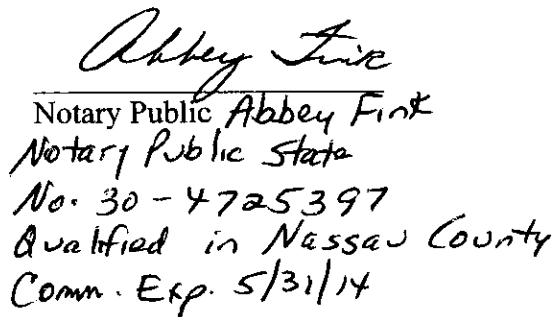 Abbey Fink
Notary Public Abbey Fink
Notary Public State
No. 30-4725397
Qualified in Nassau County
Comm. Exp. 5/31/14